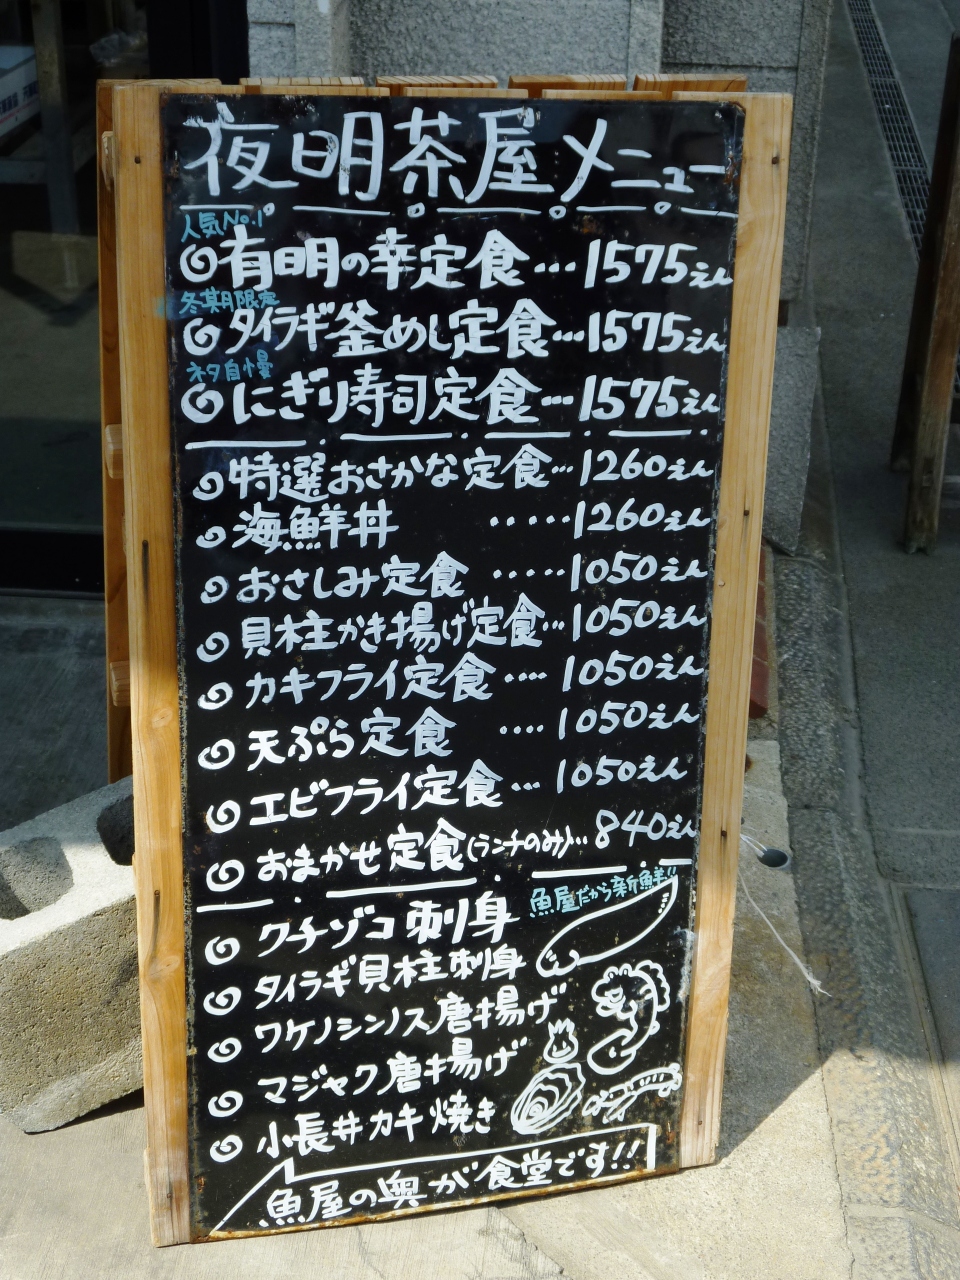 夜明茶屋メニュー
人気No.1
有明の幸定食…1575えん
冬期限定
タイラギ釜めし定食…1575えん
ネタ自慢
にぎり寿司定食…1575えん
特選おさかな定食…1260えん
海鮮丼 ・・・・・1260えん
おさしみ定食 ・・・・・1050えん
貝柱かき揚げ定食…1050えん
カキフライ定食 ・・・・1050えん
天ぷら定食 ・・・・1050えん
エビフライ定食…1050えん
おまかせ定食(ランチのみ)…840えん
魚屋だから新鮮!!
クチゾコ刺身
タイラギ貝柱刺身
ワケノシンノス唐揚げ
マジャク唐揚げ
小長井カキ焼き
魚屋の奥が食堂です!!